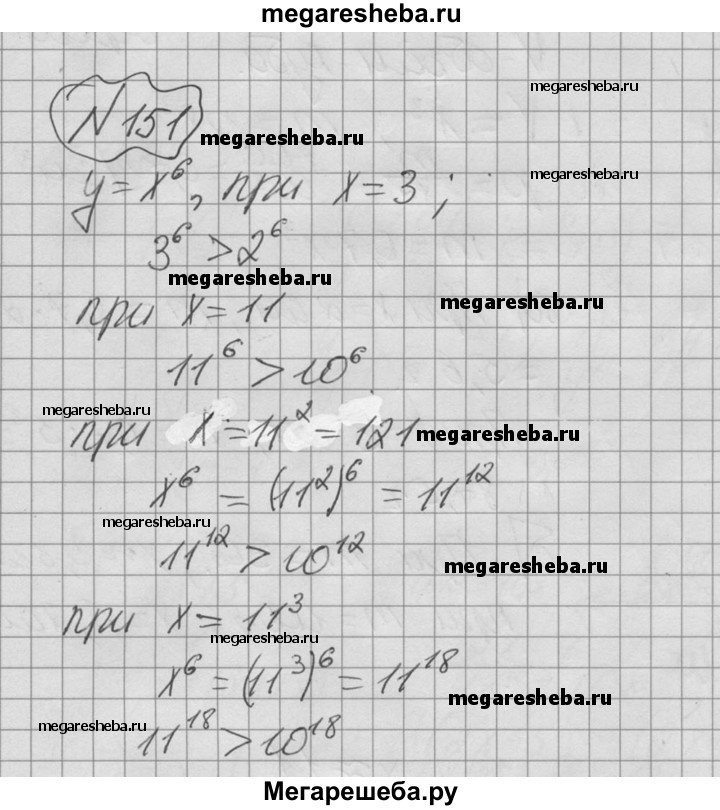 megaresheba.ru
megaresheba.ru
N 151 megaresheba.ru
megaresheba.ru
y = x⁶, при x = 3 ;
3⁶ > 2⁶
megaresheba.ru
megaresheba.ru
при x = 11
11⁶ > 10⁶
megaresheba.ru
при x = 11² = 121 megaresheba.ru
x⁶ = (11²)⁶ = 11¹²
megaresheba.ru
11¹² > 10¹² megaresheba.ru
при x = 11³
megaresheba.ru
x⁶ = (11³)⁶ = 11¹⁸
megaresheba.ru
megaresheba.ru
11¹⁸ > 10¹⁸
Мегарешеба.ру